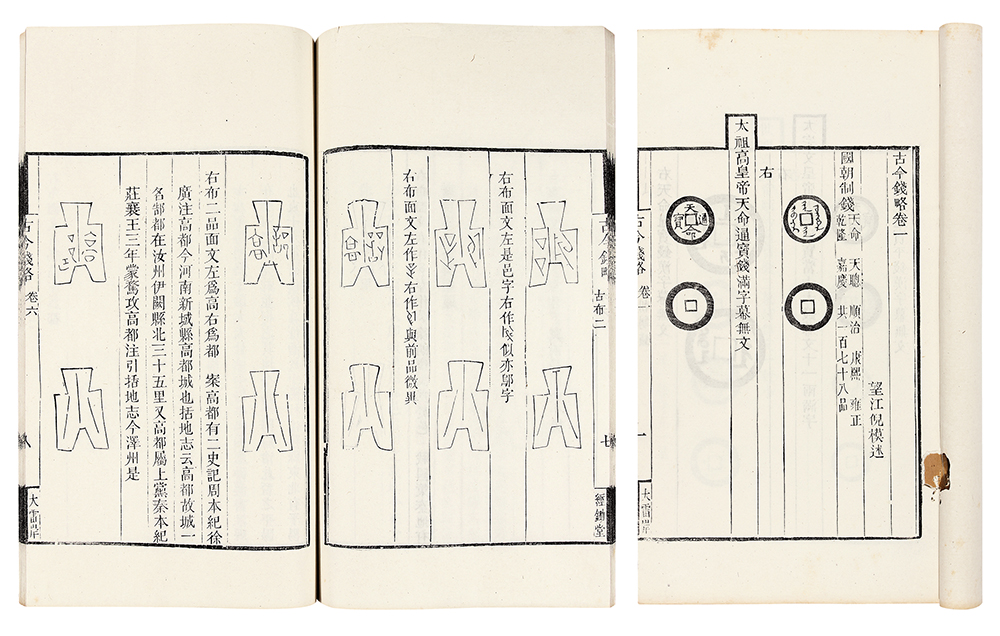 古今錢略卷一
望江倪模述
國朝制錢 天命 天聰 順治 康熙 雍正
乾隆 嘉慶 共一百七十八品
天命通寶
右
太祖高皇帝天命通寶錢滿字幕無文
古今錢略 卷一 一 大雷岸
古今錢略 古布二 七 經鉏堂
右布面文左是邑字右作似亦鄔字
右布面文左作右作與前品微異
右布二品面文左爲高右爲都 案高都有二史記周本紀徐
廣注高都今河南新城縣高都城也括地志云高都故城一
名郜都在汝州伊闕縣北三十五里又高都屬上黨秦本紀
莊襄王三年蒙驁攻高都注引括地志今澤州是
古今錢略 卷六 八 大雷岸